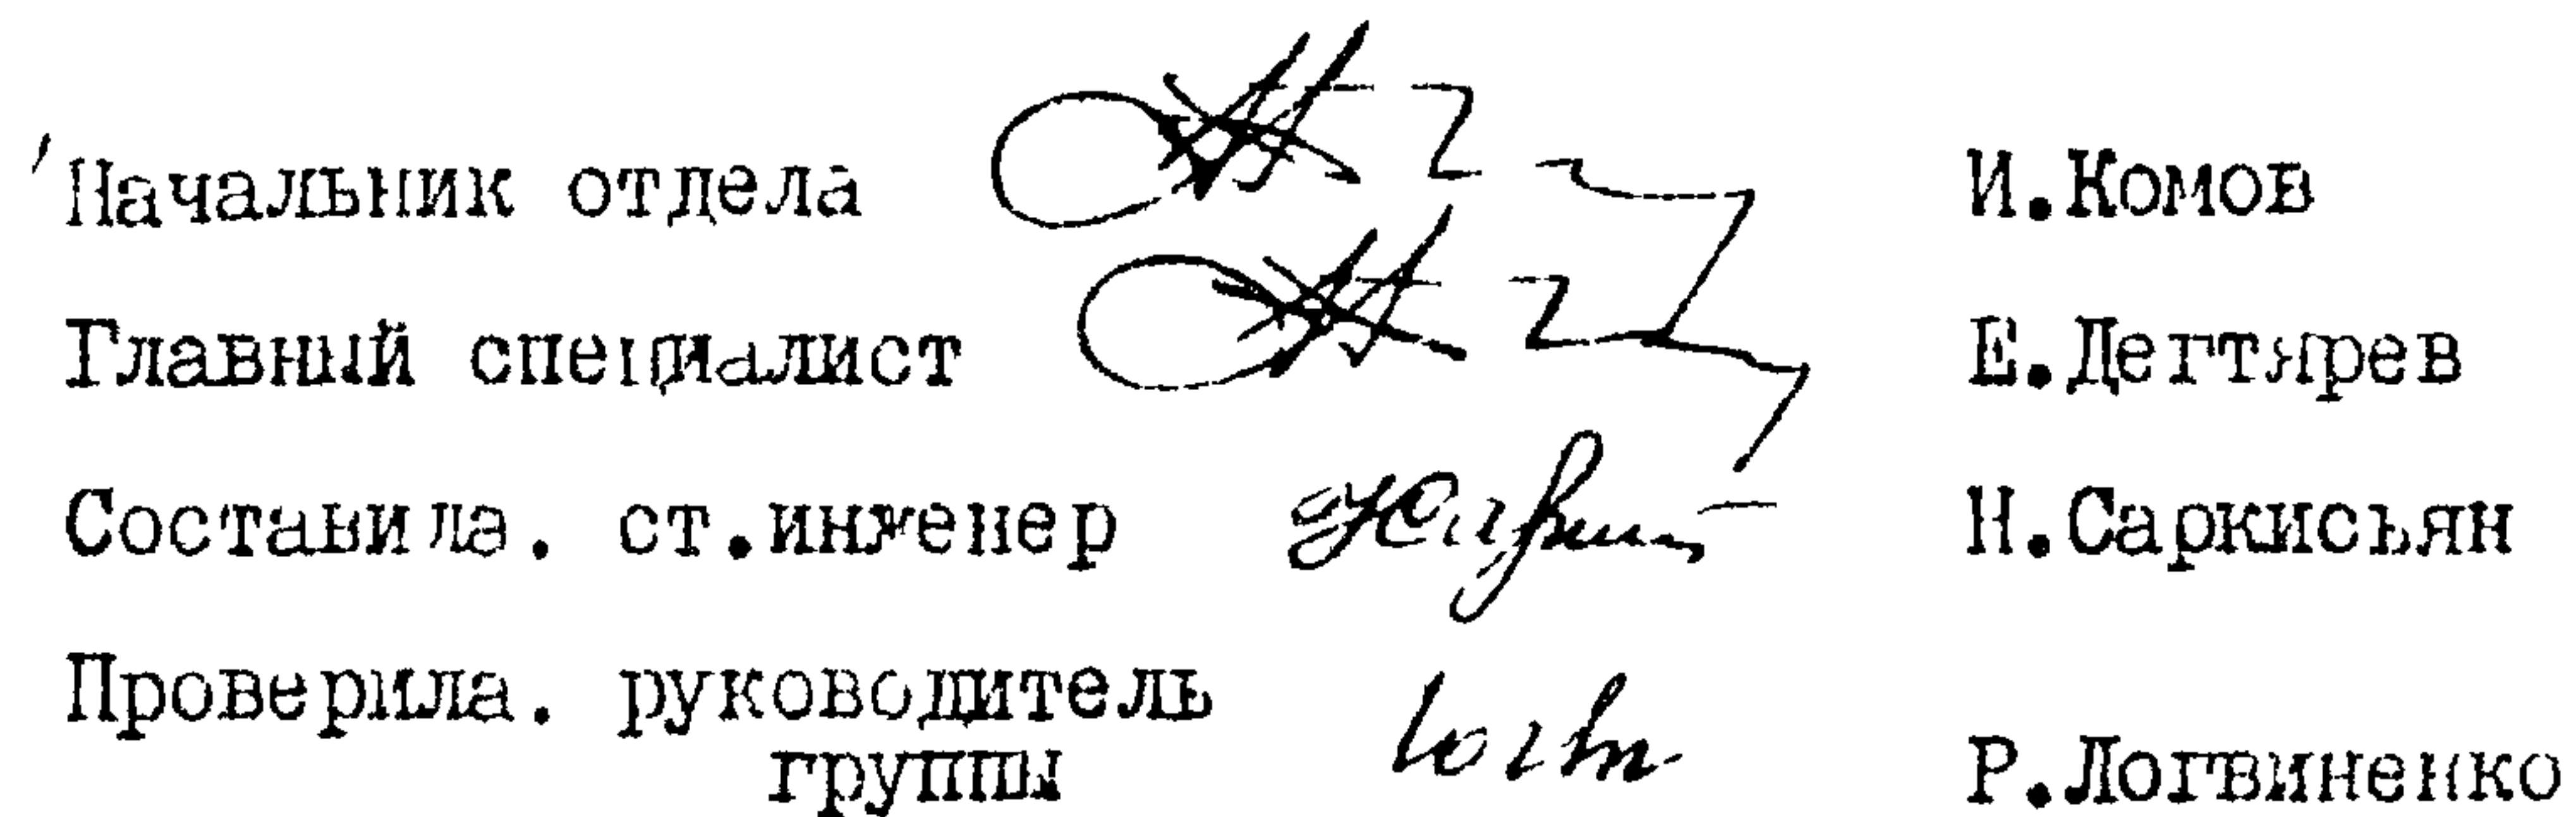 Начальник отдела И.Комов
Главный специалист Е.Дегтярев
Составила. ст.инженер Н.Саркисьян
Проверила. руководитель
группы Р.Логвиненко